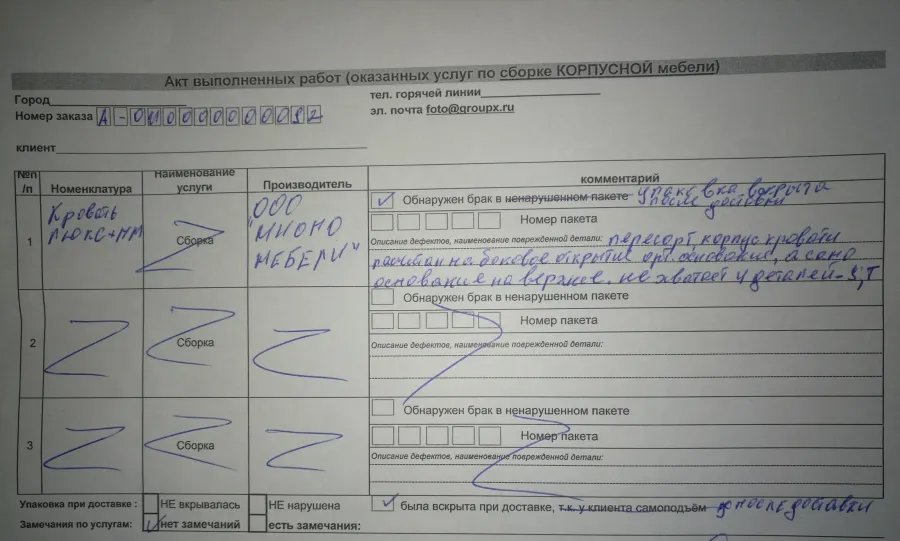 Акт выполненных работ (оказанных услуг по сборке КОРПУСНОЙ мебели)
Город
тел. горячей линии
Номер заказа
эл. почта foto@groupx.ru
клиент
№п/п Номенклатура Наименование услуги Производитель комментарий
1 Кровать люкс+ПМ Сборка ООО "МНОГО МЕБЕЛИ"
Обнаружен брак в ненарушенном пакете упаковка вскрыта после доставки
Номер пакета
Описание дефектов, наименование поврежденной детали: пересорт, корпус кровати
расчитан на боковое открытие орт. основания, а само
основание на верхнее. не хватает 4 деталей -
2 Сборка
Обнаружен брак в ненарушенном пакете
Номер пакета
Описание дефектов, наименование поврежденной детали:
3 Сборка
Обнаружен брак в ненарушенном пакете
Номер пакета
Описание дефектов, наименование поврежденной детали:
Упаковка при доставке : НЕ вкрывалась НЕ нарушена была вскрыта при доставке, т.к. у клиента самоподъём после доставки
Замечания по услугам: нет замечаний есть замечания: